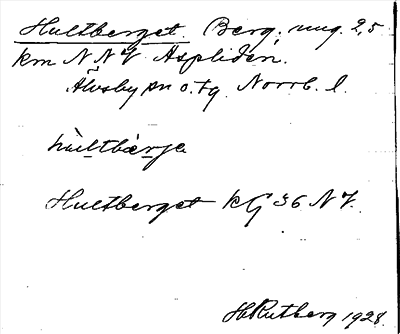 Hultberget. Berg, ung. 2,5
km NNV Aspliden.
Älvsby sn o. tg Norrb. l.
hùltbærje
Hultberget kG 36 NV.
H Rutberg 1928.